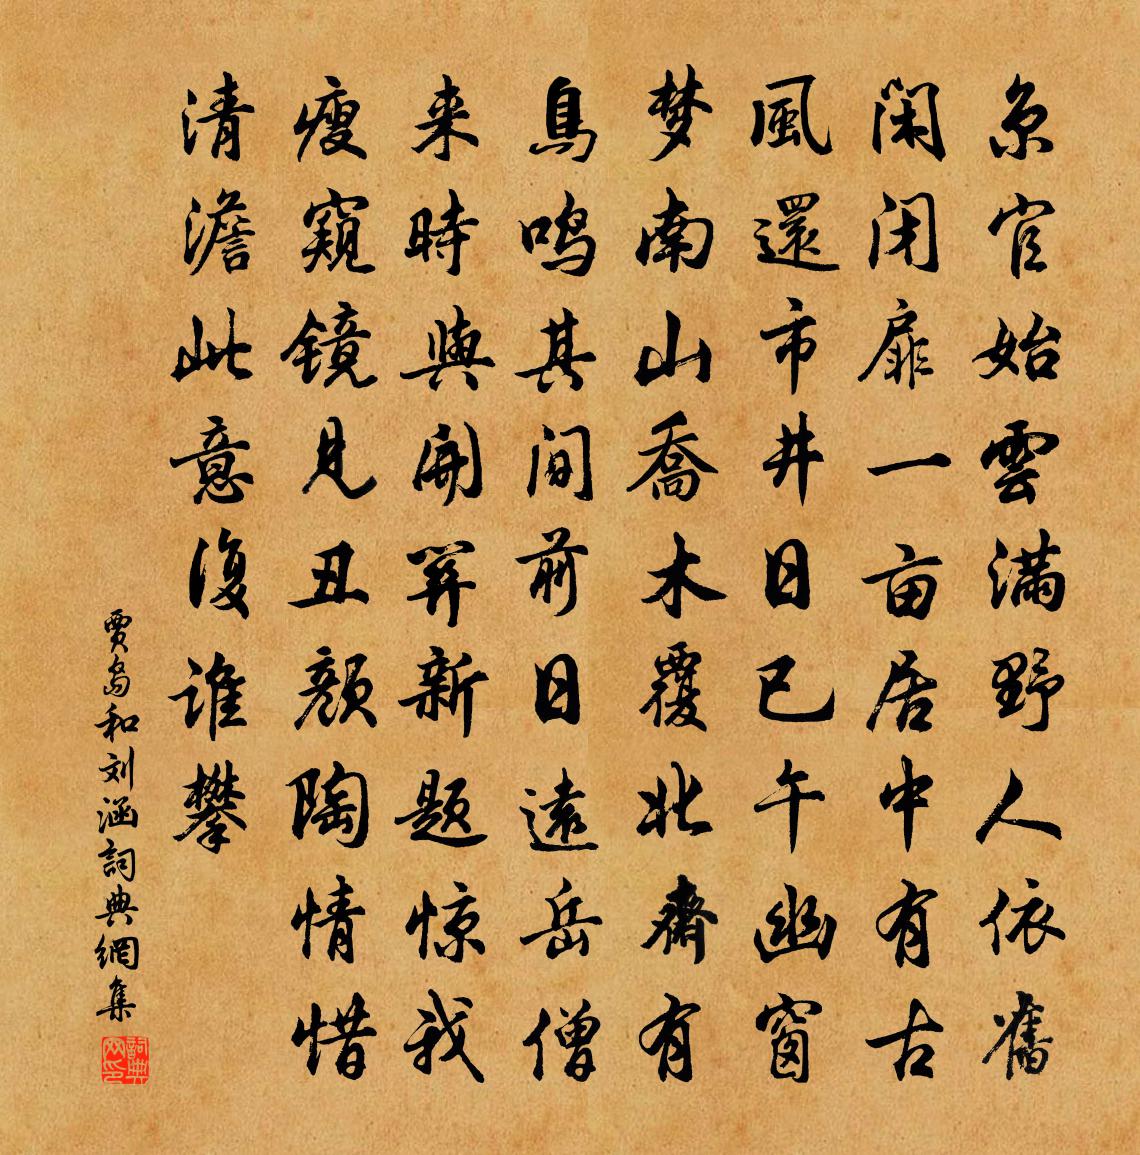 京官始雲滿野人依舊
闲闭扉一亩居中有古
風還市井日已午幽窗
梦南山喬木覆北齋有
鳥鸣其间前日遠岳僧
来時與開关新题惊我
瘦窺镜見丑颜陶情惜
清澹此意復谁攀
贾岛和刘涵詞典網集
詞典网印